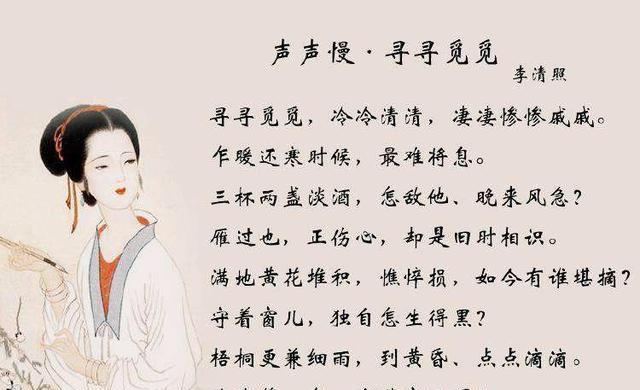 声声慢·寻寻觅觅
李清照
寻寻觅觅，冷冷清清，凄凄惨惨戚戚。
乍暖还寒时候，最难将息。
三杯两盏淡酒，怎敌他、晚来风急？
雁过也，正伤心，却是旧时相识。
满地黄花堆积，憔悴损，如今有谁堪摘？
守着窗儿，独自怎生得黑？
梧桐更兼细雨，到黄昏、点点滴滴。